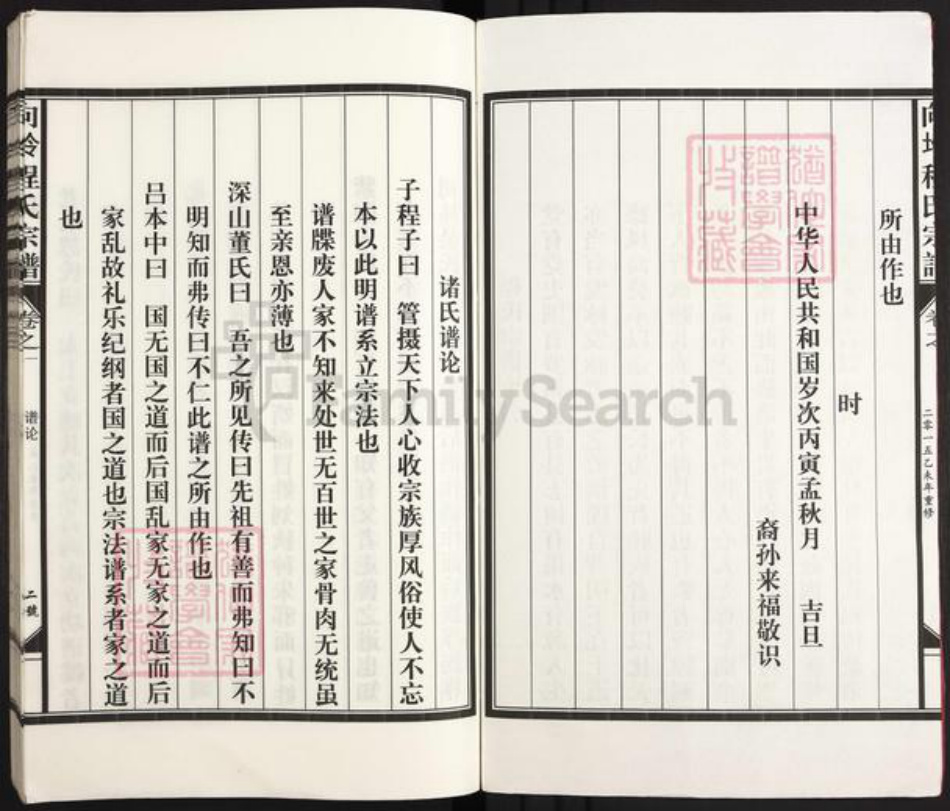 所由作也
时
中华人民共和国岁次丙寅孟秋月　吉旦
裔孙来福敬识
二零一五乙未年重修
诸氏谱论
子程子曰　管摄天下人心收宗族厚风俗使人不忘
本以此明谱系立宗法也
谱牒废人家不知来处世无百世之家骨肉无统虽
至亲恩亦薄也
深山董氏曰　吾之所见传曰先祖有善而弗知曰不
明知而弗传曰不仁此谱之所由作也
吕本中曰　国无国之道而后国乱家无家之道而后
家乱故礼乐纪纲者国之道也宗法谱系者家之道
也
程氏宗谱
卷之一
谱论
二號
FamilySearch